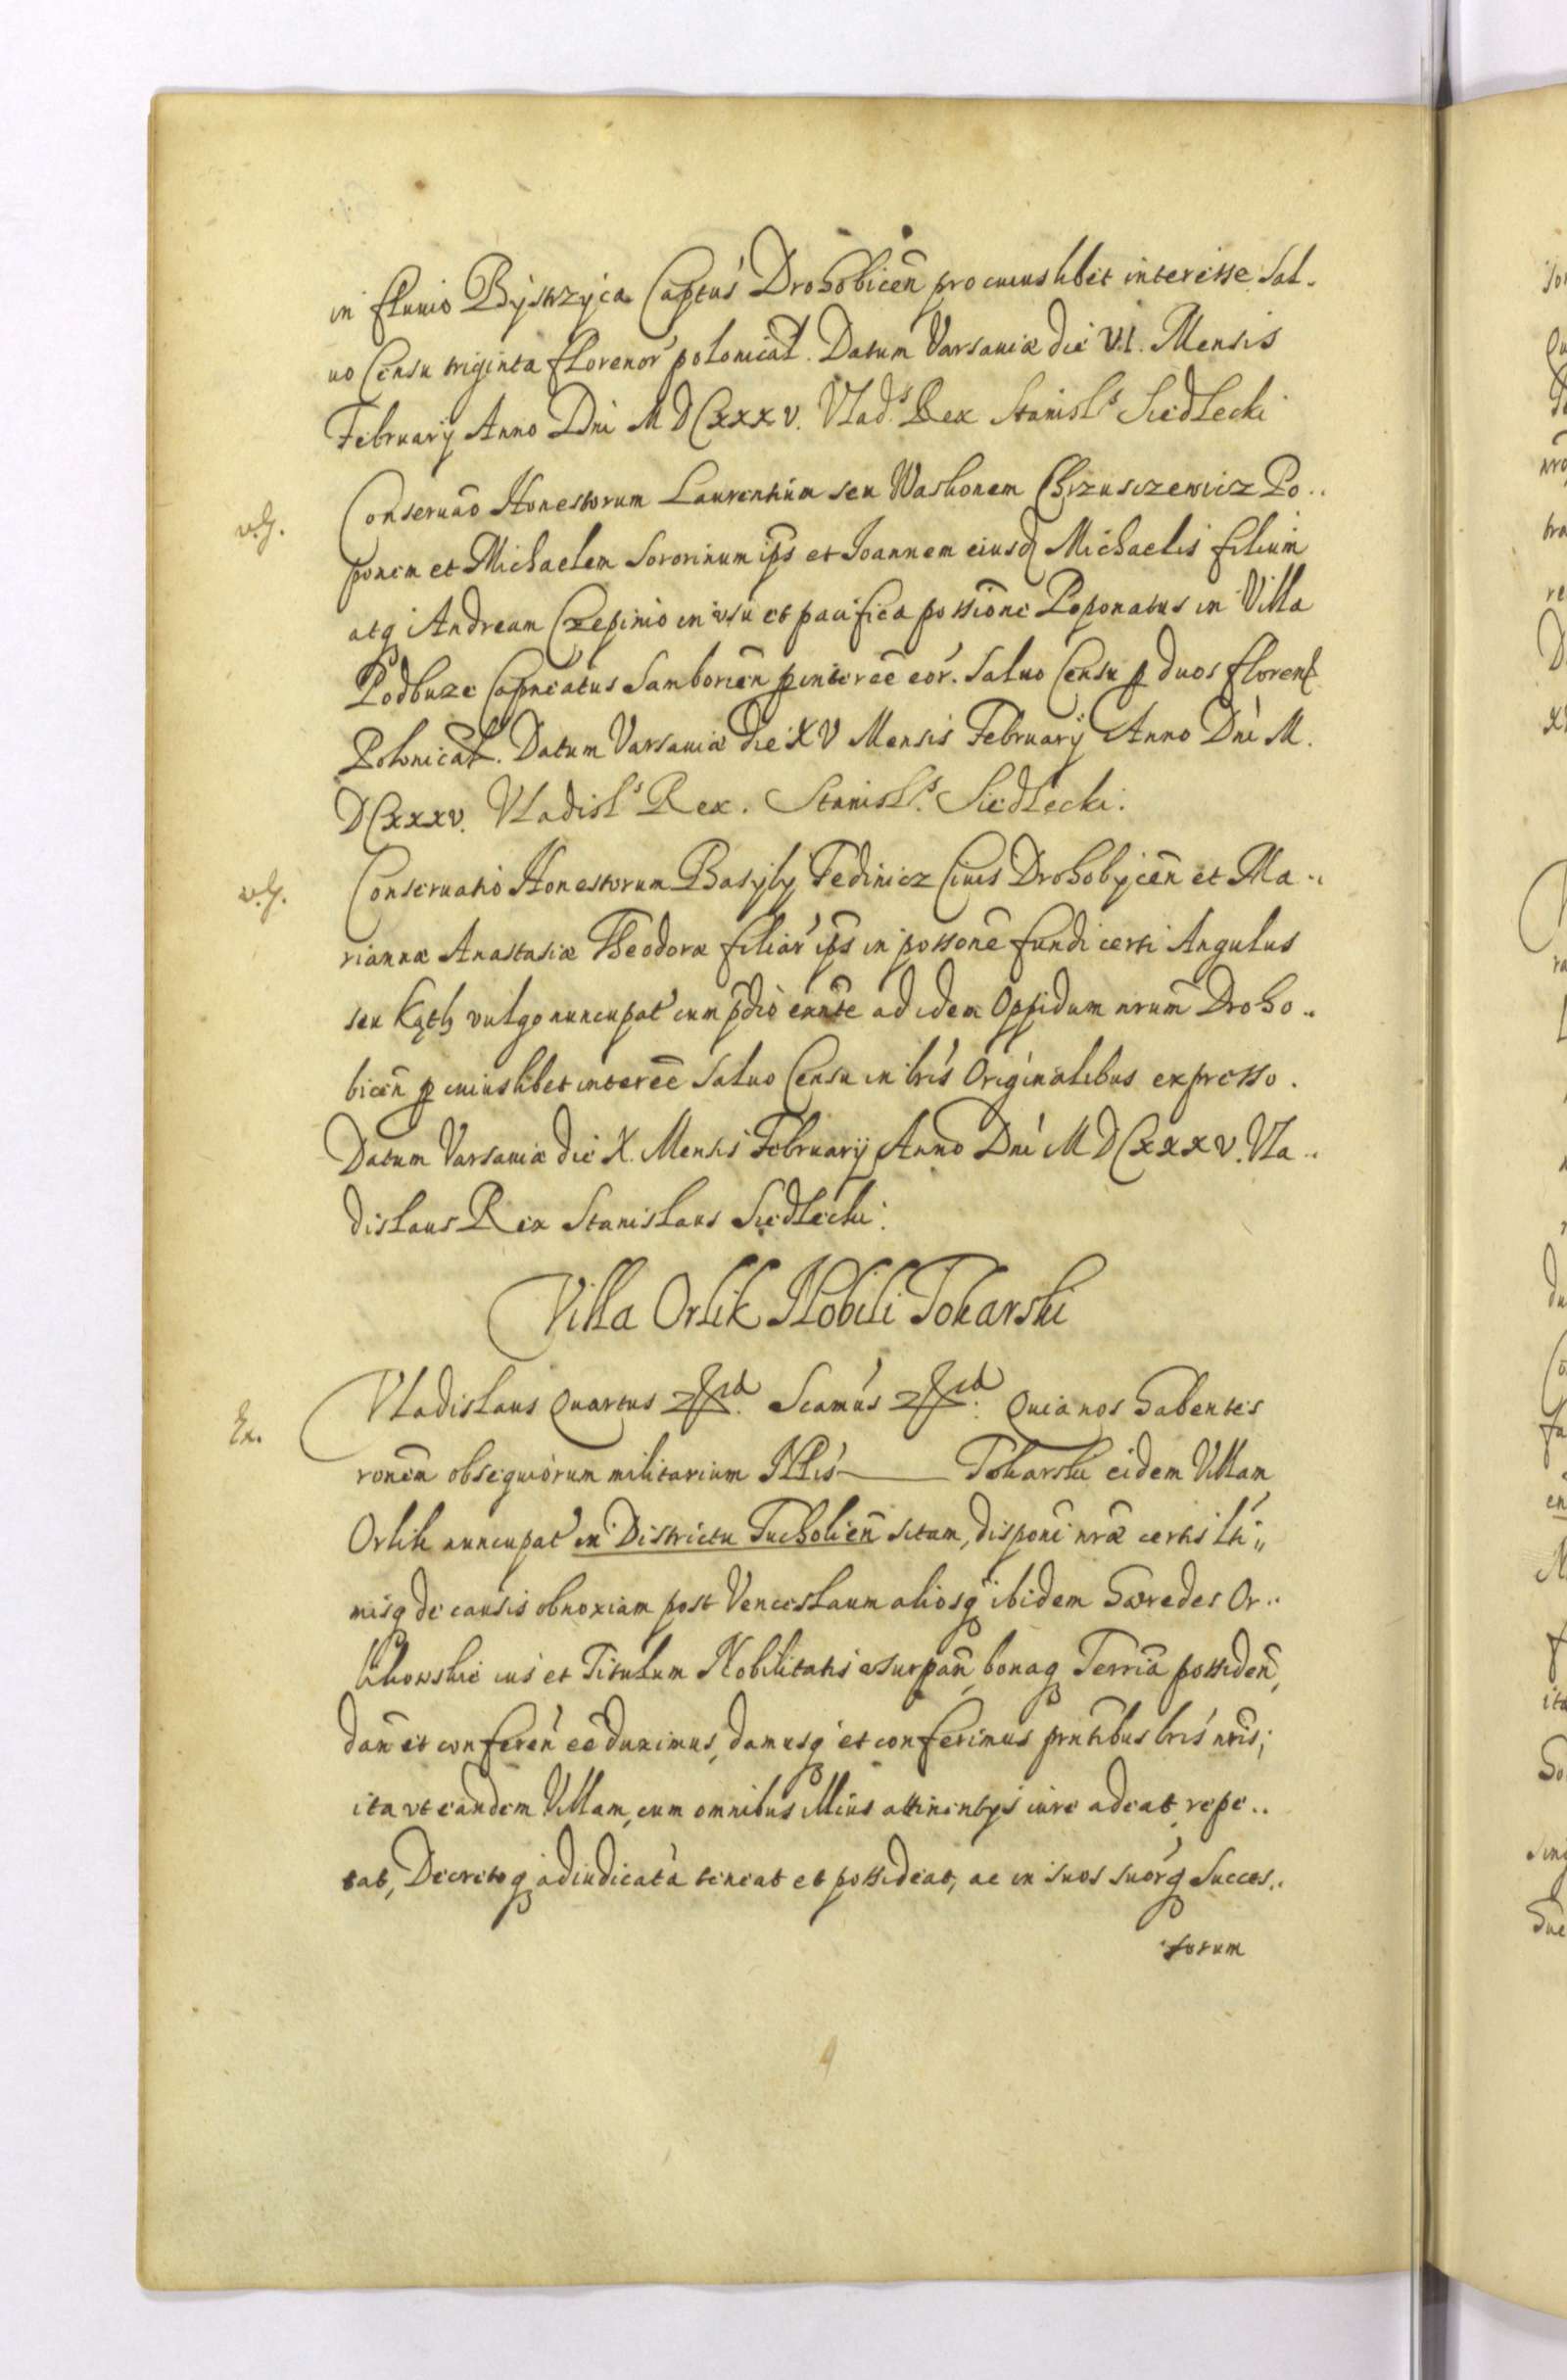 in fluuio Bystrzyca Captus Drohobicen pro cuiuslibet interesse. Sal-
uo Censu triginta florenor polonical. Datum Varsauiæ die VI. Mensis
February Anno Dni M DCxxxv. Vlad.s Rex Stanisl.s Siedlecki
v.g. Conseruão Honestorum Laurentium seu Waskonem Chrzusczewicz Po..
ponem et Michaelem Sororinum ips et Joannem eiusq Michaelis filium
atq Andream Czepinio in vsu et pacifica possione Poponatus in Villa
Podbuze Capneatus Samborien p interee eor. Saluo Censu p duos floren
Polonical. Datum Varsauiæ die XV Mensis February Anno Dni M.
DCxxxv. Vladisl.s Rex. Stanisl.s Siedlecki.
v.g. Conseruatio Honestorum Basyly Fedinicz Ciuis Drohobycen et Ma..
riannæ Anastasiæ Theodoræ filiar ips in possone fundi certi Angulus
seu Kąth vulgo nuncupat cum pdio ad idem Oppidum nrum Droho..
bicen p cuiuslibet interee Saluo Censu in lris Originalibus expresso.
Datum Varsauiæ die X. Mensis February Anno Dni M DCxxxv. Vla..
dislaus Rex Stanislaus Siedlecki.
Villa Orlik Nobili Tokarski
Ex. Vladislaus Quartus Scamus Quia nos habentes
ronem obsequiorum militarium Nlis Tokarski eidem Villam
Orlik nuncupat in Districtu Tucholien sitam, disponi nræ certis lti,,
misq de causis obnoxiam post Venceslaum aliosq ibidem hæredes Or..
likowskie ius et Titulum Nobilitatis usurpan, bonaq Terria possiden,
dan et conferen ee duximus, damusq et conferimus prntibus lris nris;
ita vt eandem Villam, cum omnibus illius attinentys iure adeat, repe..
tat, Decretoq adiudicata teneat et possideat, ac in suos suorq Succes..
sorum